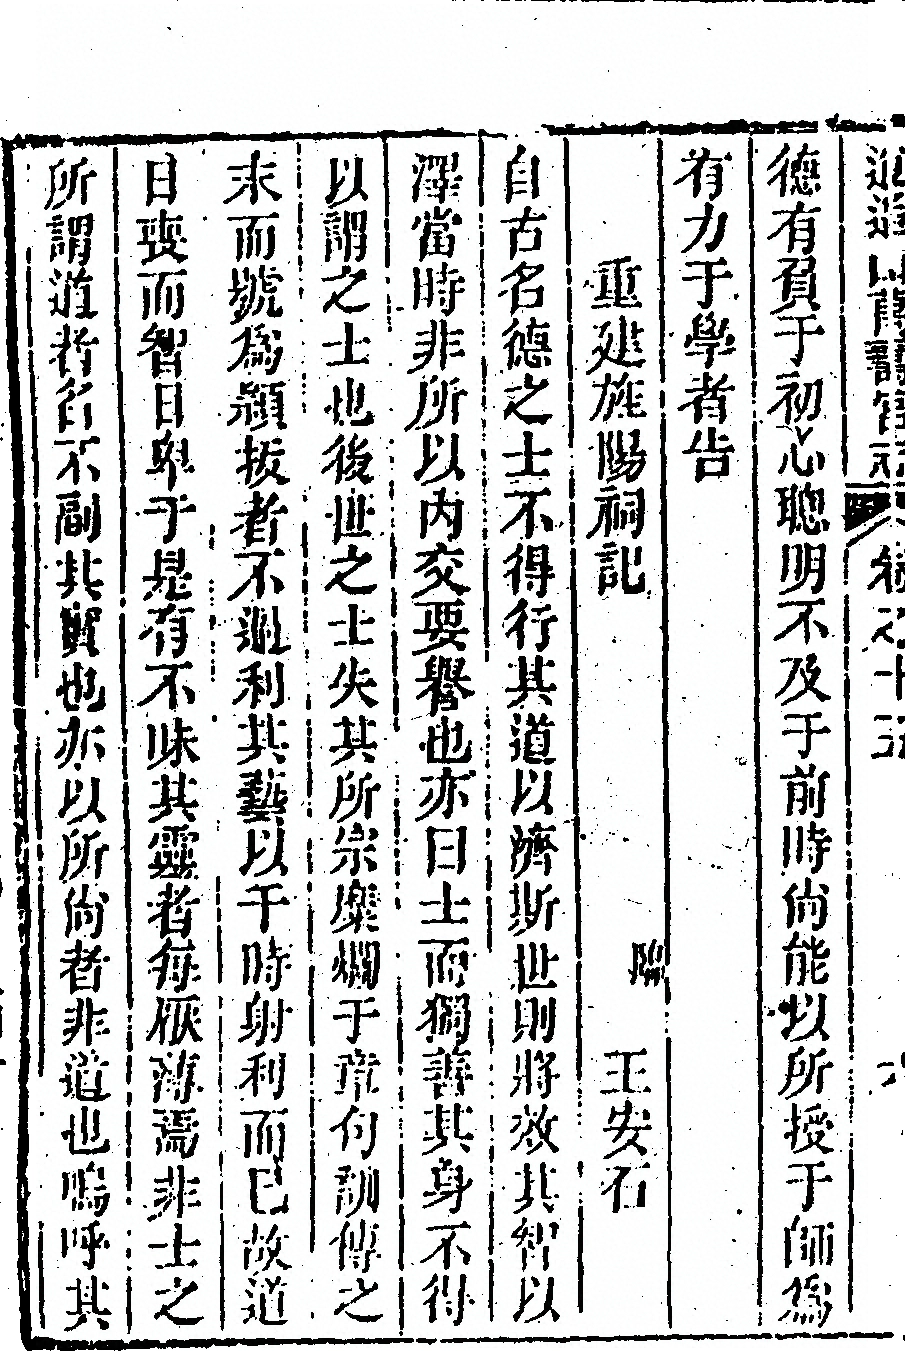 逍遙山萬壽宮志 卷之十五
德有負于初心聰明不及于前時尙能以所授于師爲
有力于學者告
重建旌陽祠記 臨 王安石
自古名德之士不得行其道以濟斯世則將效其智以
澤當時非所以內交要譽也亦曰士而獨善其身不得
以謂之士也後世之士失其所宗糜爛于章句訓傳之
末而號爲穎拔者不過利其藝以干時射利而已故道
日喪而智日卑于是有不昧其靈者每厭薄焉非士之
所謂道者名不副其實也亦以所尙者非道也嗚呼其